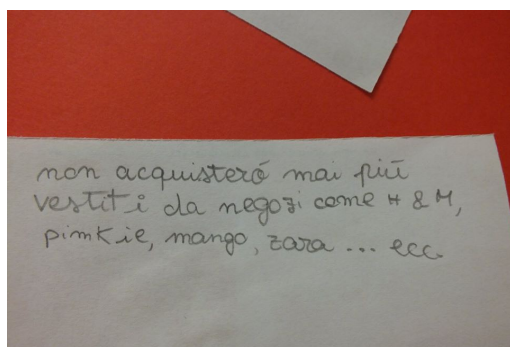 non acquisteró mai piú
vestiti da negozi come H & M,
pimkie, mango, zara ... ecc.